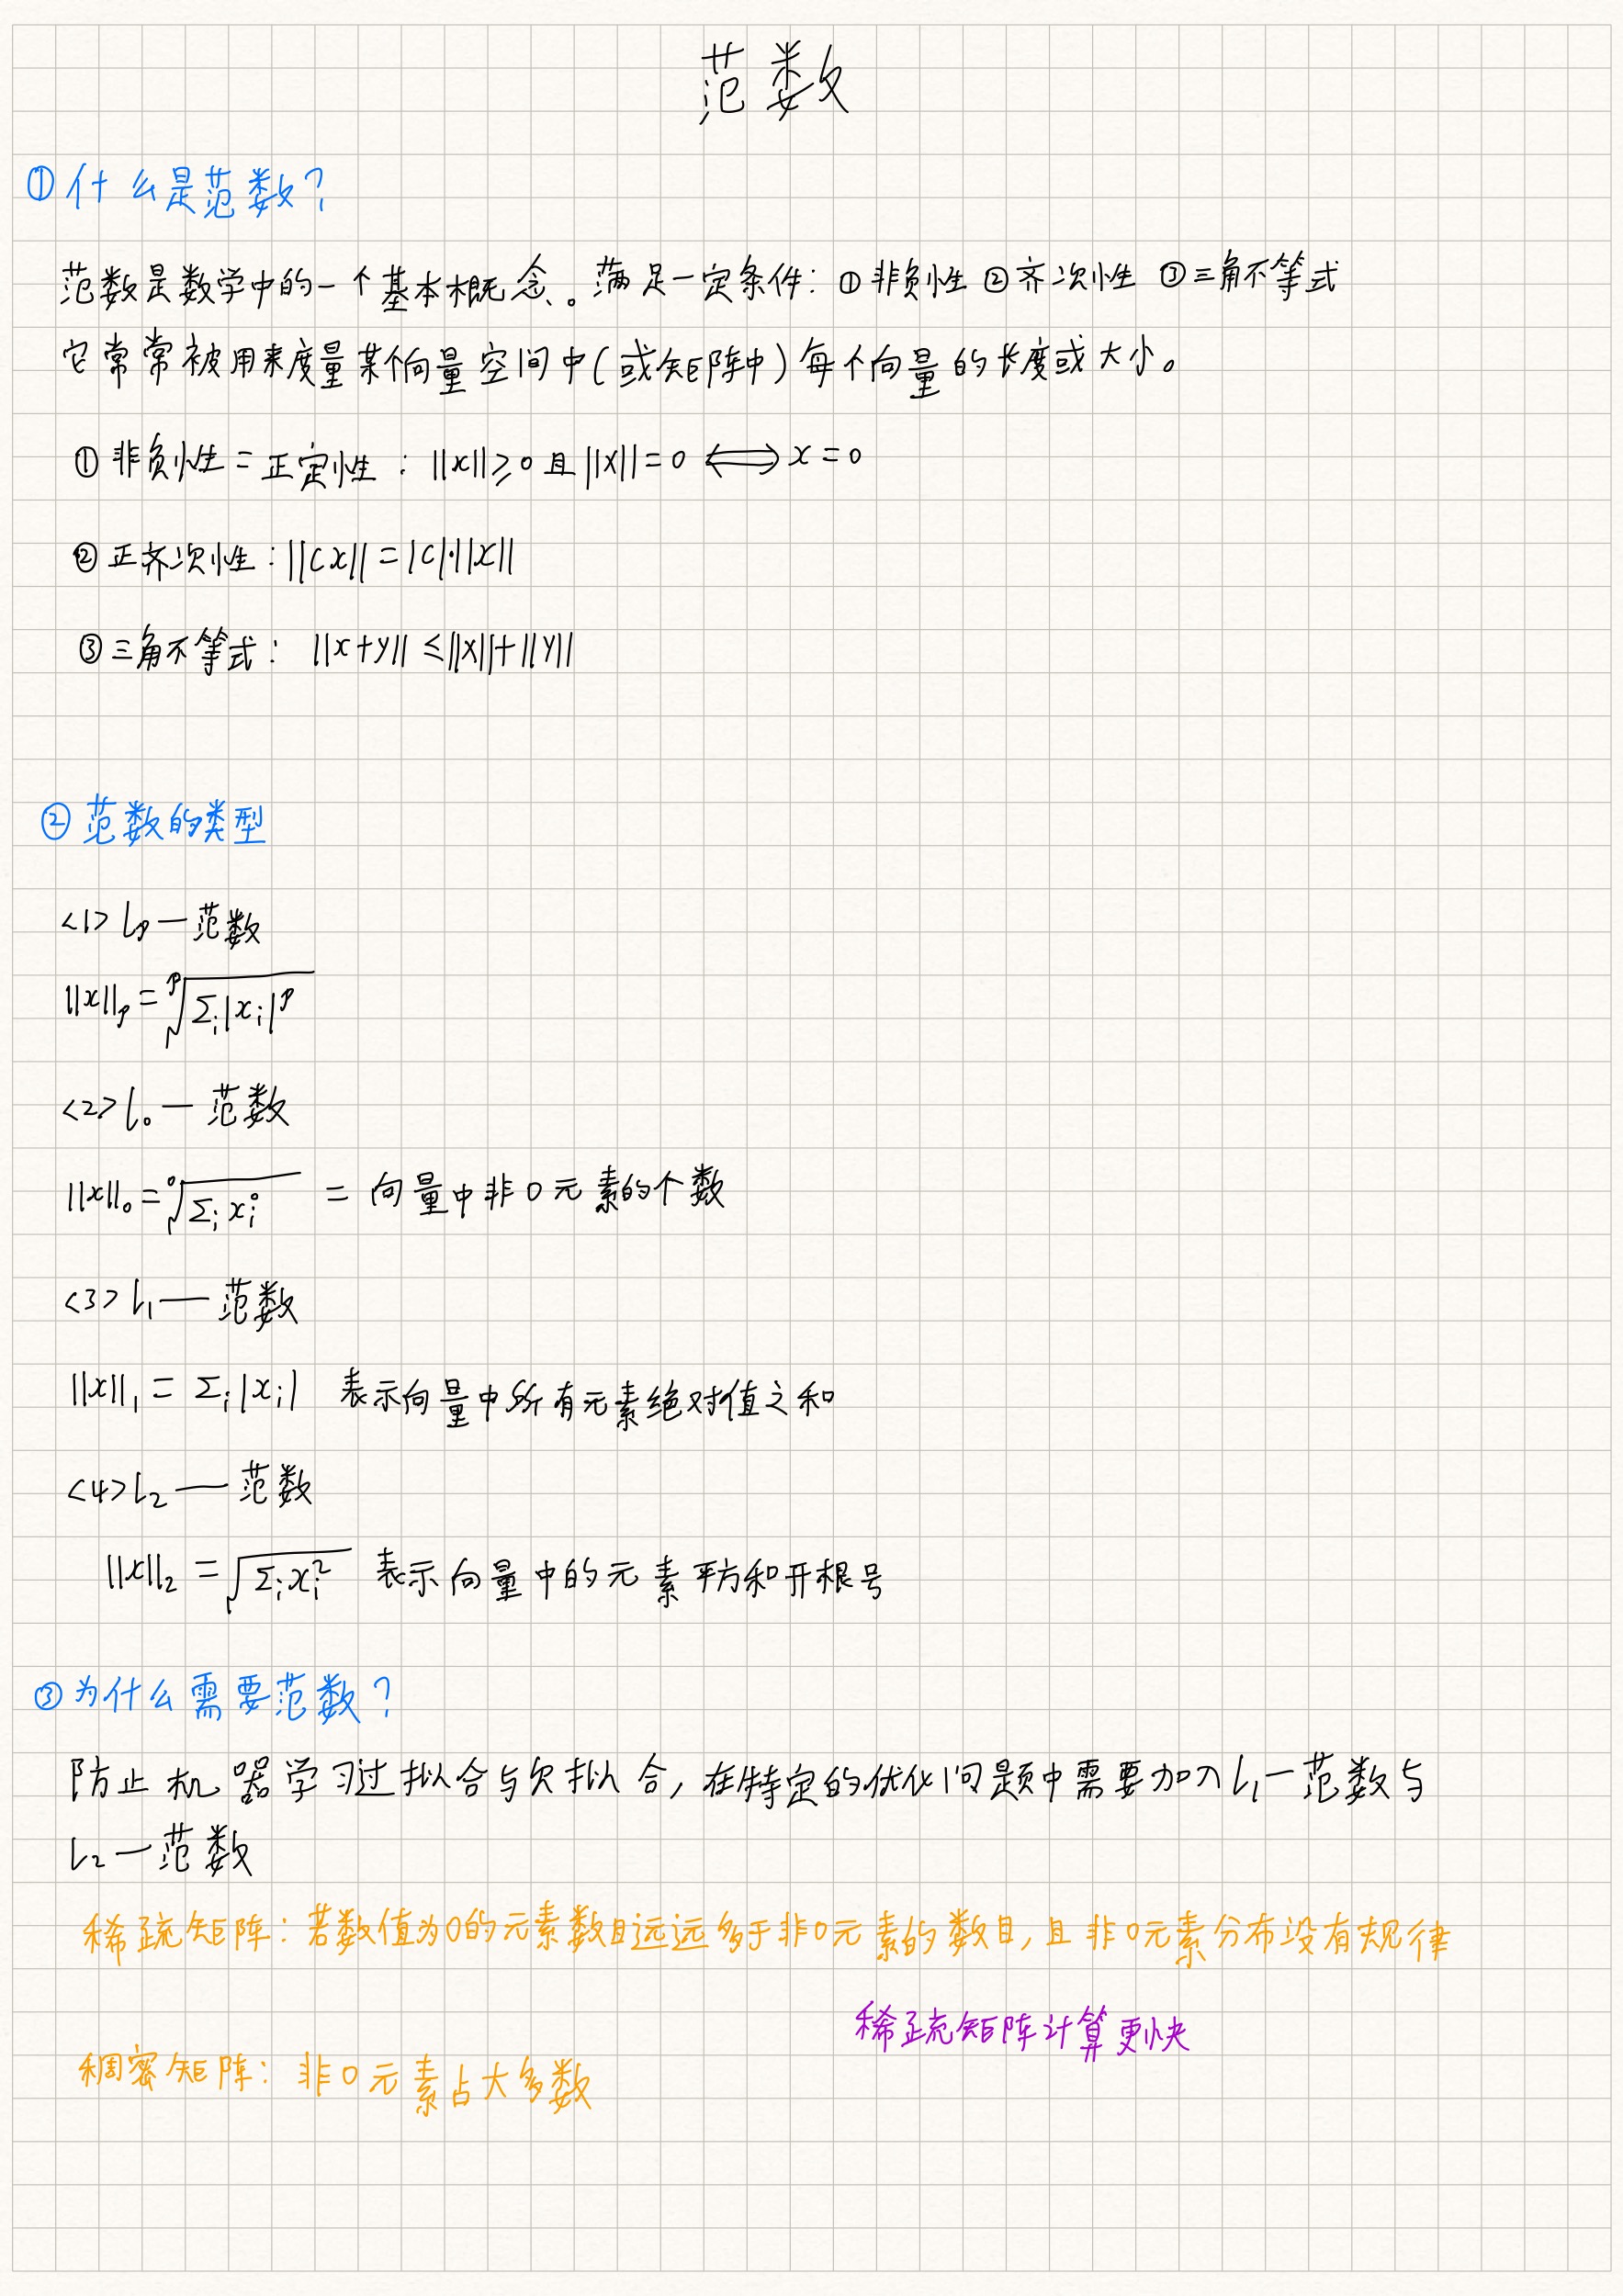 范数
①什么是范数?
范数是数学中的一个基本概念。满足一定条件:①非负性 ②齐次性 ③三角不等式
它常常被用来度量某个向量空间中(或矩阵中)每个向量的长度或大小。
①非负性=正定性:||x||≥0且||x||=0 ⟺ x=0
②正齐次性:||cx||=|c|·||x||
③三角不等式: ||x+y||≤||x||+||y||
②范数的类型
<1> Lp—范数
||x||ₚ=ᵖ√Σᵢ|xᵢ|ᵖ
<2> L₀—范数
||x||₀=⁰√Σᵢxᵢ⁰ = 向量中非0元素的个数
<3> L₁—范数
||x||₁=Σᵢ|xᵢ| 表示向量中所有元素绝对值之和
<4> L₂—范数
||x||₂=√Σᵢxᵢ² 表示向量中的元素平方和开根号
③为什么需要范数?
防止机器学习过拟合与欠拟合,在特定的优化问题中需要加入L₁—范数与
L₂—范数
稀疏矩阵:若数值为0的元素数目远远多于非0元素的数目,且非0元素分布没有规律
稀疏矩阵计算更快
稠密矩阵:非0元素占大多数